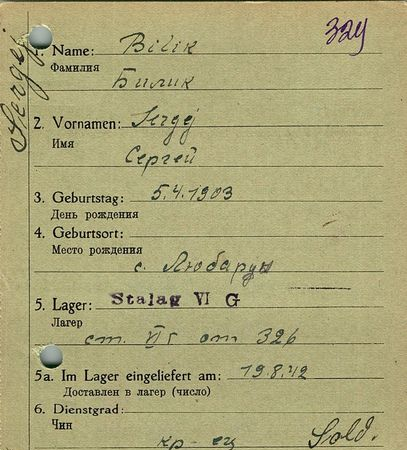 329
Sergej
1. Name: Bilik
Фамилия
Билик
2. Vornamen: Sergej
Имя
Сергей
3. Geburtstag: 5.4.1903
День рождения
4. Geburtsort:
Место рождения
с.
5. Lager: Stalag VI G
Лагер
ст. VI г от 326
5a. Im Lager eingeliefert am: 19.8.42
Доставлен в лагер (число)
6. Dienstgrad:
Чин
кр-ец Sold.